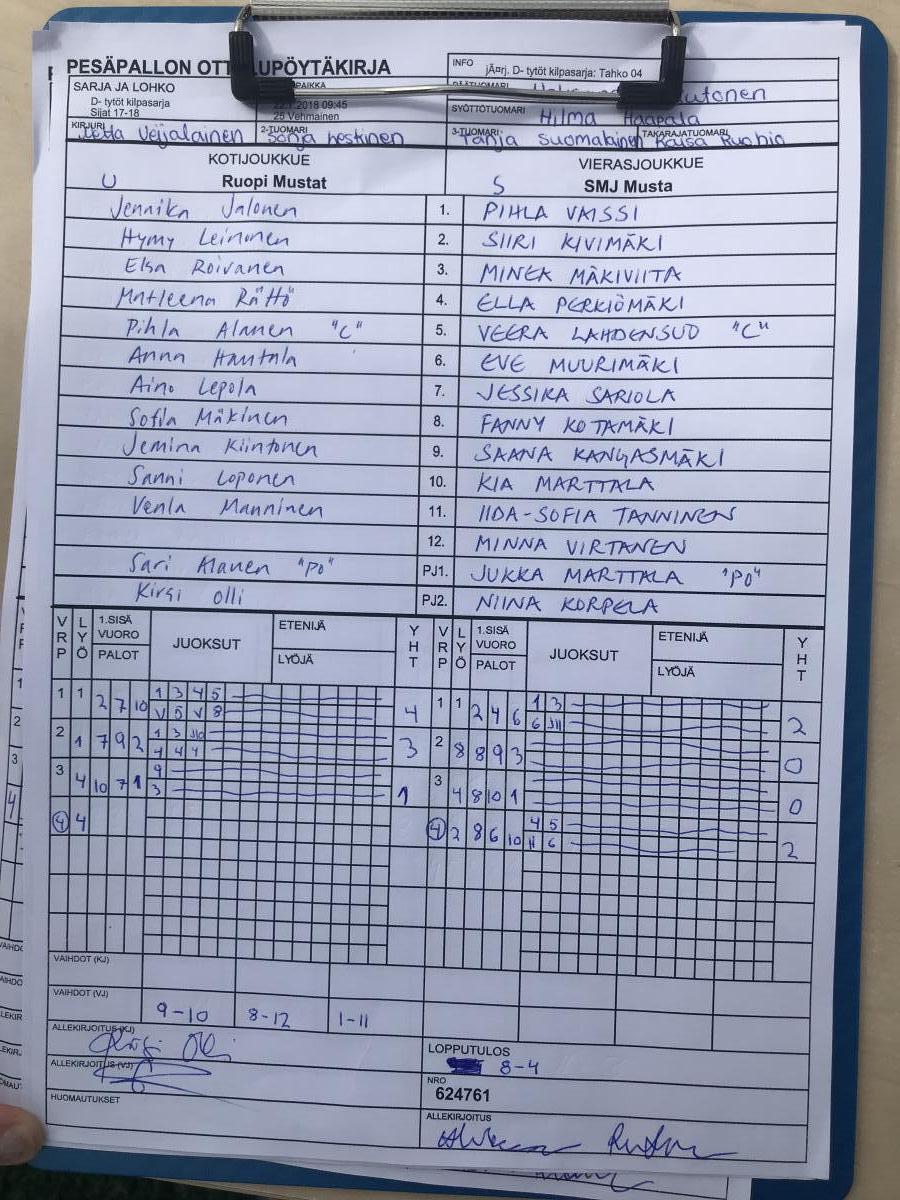 PESÄPALLON OTT UPÖYTÄKIRJA
INFO jÃ¤rj. D- tytöt kilpasarja: Tahko 04
SARJA JA LOHKO
D- tytöt kilpasarja
Sijat 17-18
PAIKKA
2018 09:45
25 Vehmainen
SYÖTTÖTUOMARI Hilma Haapala
KIRJURI Veijalainen 2-TUOMARI Sonja 3-TUOMARI Tanja Suomalainen TAKARAJATUOMARI Kaisa
KOTIJOUKKUE VIERASJOUKKUE
U Ruopi Mustat S SMJ Musta
Jennika Jalonen 1. PIHLA VAISSI
Hymy Leinonen 2. SIIRI KIVIMÄKI
Elsa Roivanen 3. MINEA MÄKIVIITA
Matleena Rättö 4. ELLA PERKIÖMÄKI
Pihla Alanen "C" 5. VEERA LAHDENSUO "C"
Anna Hautala 6. EVE MUURIMÄKI
Aino Lepola 7. JESSIKA SARIOLA
Sofia Mäkinen 8. FANNY KOTAMÄKI
Jemina Kiintonen 9. SAANA KANGASMÄKI
Sanni Loponen 10. KIA MARTTALA
Venla Manninen 11. IIDA-SOFIA TANNINEN
12. MINNA VIRTANEN
Sari Alanen "PO" PJ1. JUKKA MARTTALA "PO"
Kirsi Olli PJ2. NIINA KORPELA
VRP LYÖ 1.SISÄ VUORO PALOT JUOKSUT ETENIJÄ LYÖJÄ YHT VRP LYÖ 1.SISÄ VUORO PALOT JUOKSUT ETENIJÄ LYÖJÄ YHT
1 1 2 7 10 1 3 4 5 4 1 1 2 4 6 1 3 2
V 5 V 8 6
2 1 7 9 2 1 3 3 2 8 8 9 3 0
4 4 4
3 4 10 7 1 9 1 3 4 8 10 1 0
3
4 4 4 2 8 6 10 4 5 2
11 6
VAIHDOT (KJ)
VAIHDOT (VJ) 9-10 8-12 1-11
ALLEKIRJOITUS (KJ) Kirsi Olli
LOPPUTULOS
8-4
ALLEKIRJOITUS (VJ)
NRO
624761
HUOMAUTUKSET
ALLEKIRJOITUS